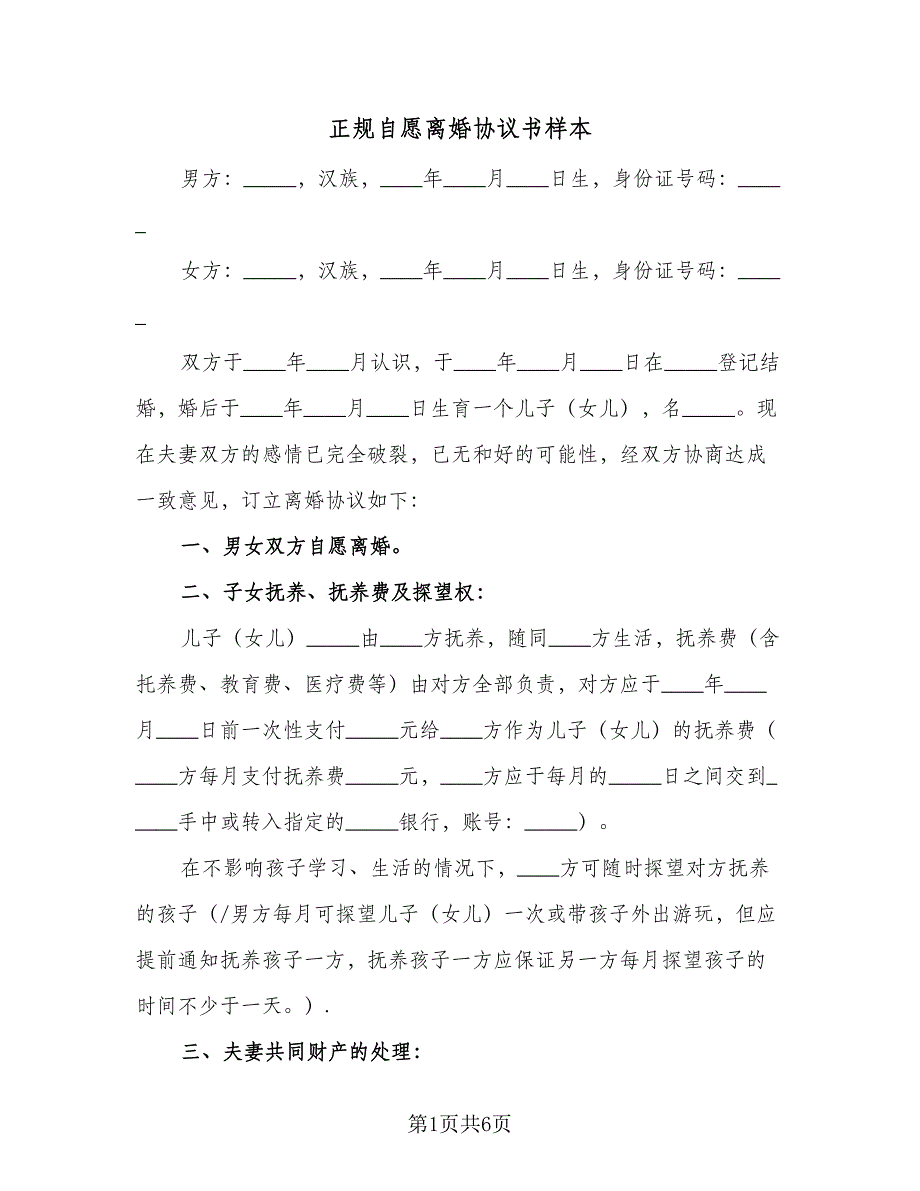 正规自愿离婚协议书样本
男方：_____，汉族，____年____月____日生，身份证号码：____
_
女方：_____，汉族，____年____月____日生，身份证号码：____
_
双方于____年____月认识，于____年____月____日在_____登记结
婚，婚后于____年____月____日生育一个儿子（女儿），名_____。现
在夫妻双方的感情已完全破裂，已无和好的可能性，经双方协商达成
一致意见，订立离婚协议如下：
一、男女双方自愿离婚。
二、子女抚养、抚养费及探望权：
儿子（女儿）_____由____方抚养，随同____方生活，抚养费（含
托养费、教育费、医疗费等）由对方全部负责，对方应于____年____
月____日前一次性支付_____元给____方作为儿子（女儿）的抚养费（
____方每月支付抚养费_____元，____方应于每月的_____日之间交到_
____手中或转入指定的_____银行，账号：_____）。
在不影响孩子学习、生活的情况下，____方可随时探望对方抚养
的孩子（/男方每月可探望儿子（女儿）一次或带孩子外出游玩，但应
提前通知抚养孩子一方，抚养孩子一方应保证另一方每月探望孩子的
时间不少于一天。）.
三、夫妻共同财产的处理：
第1页共6页